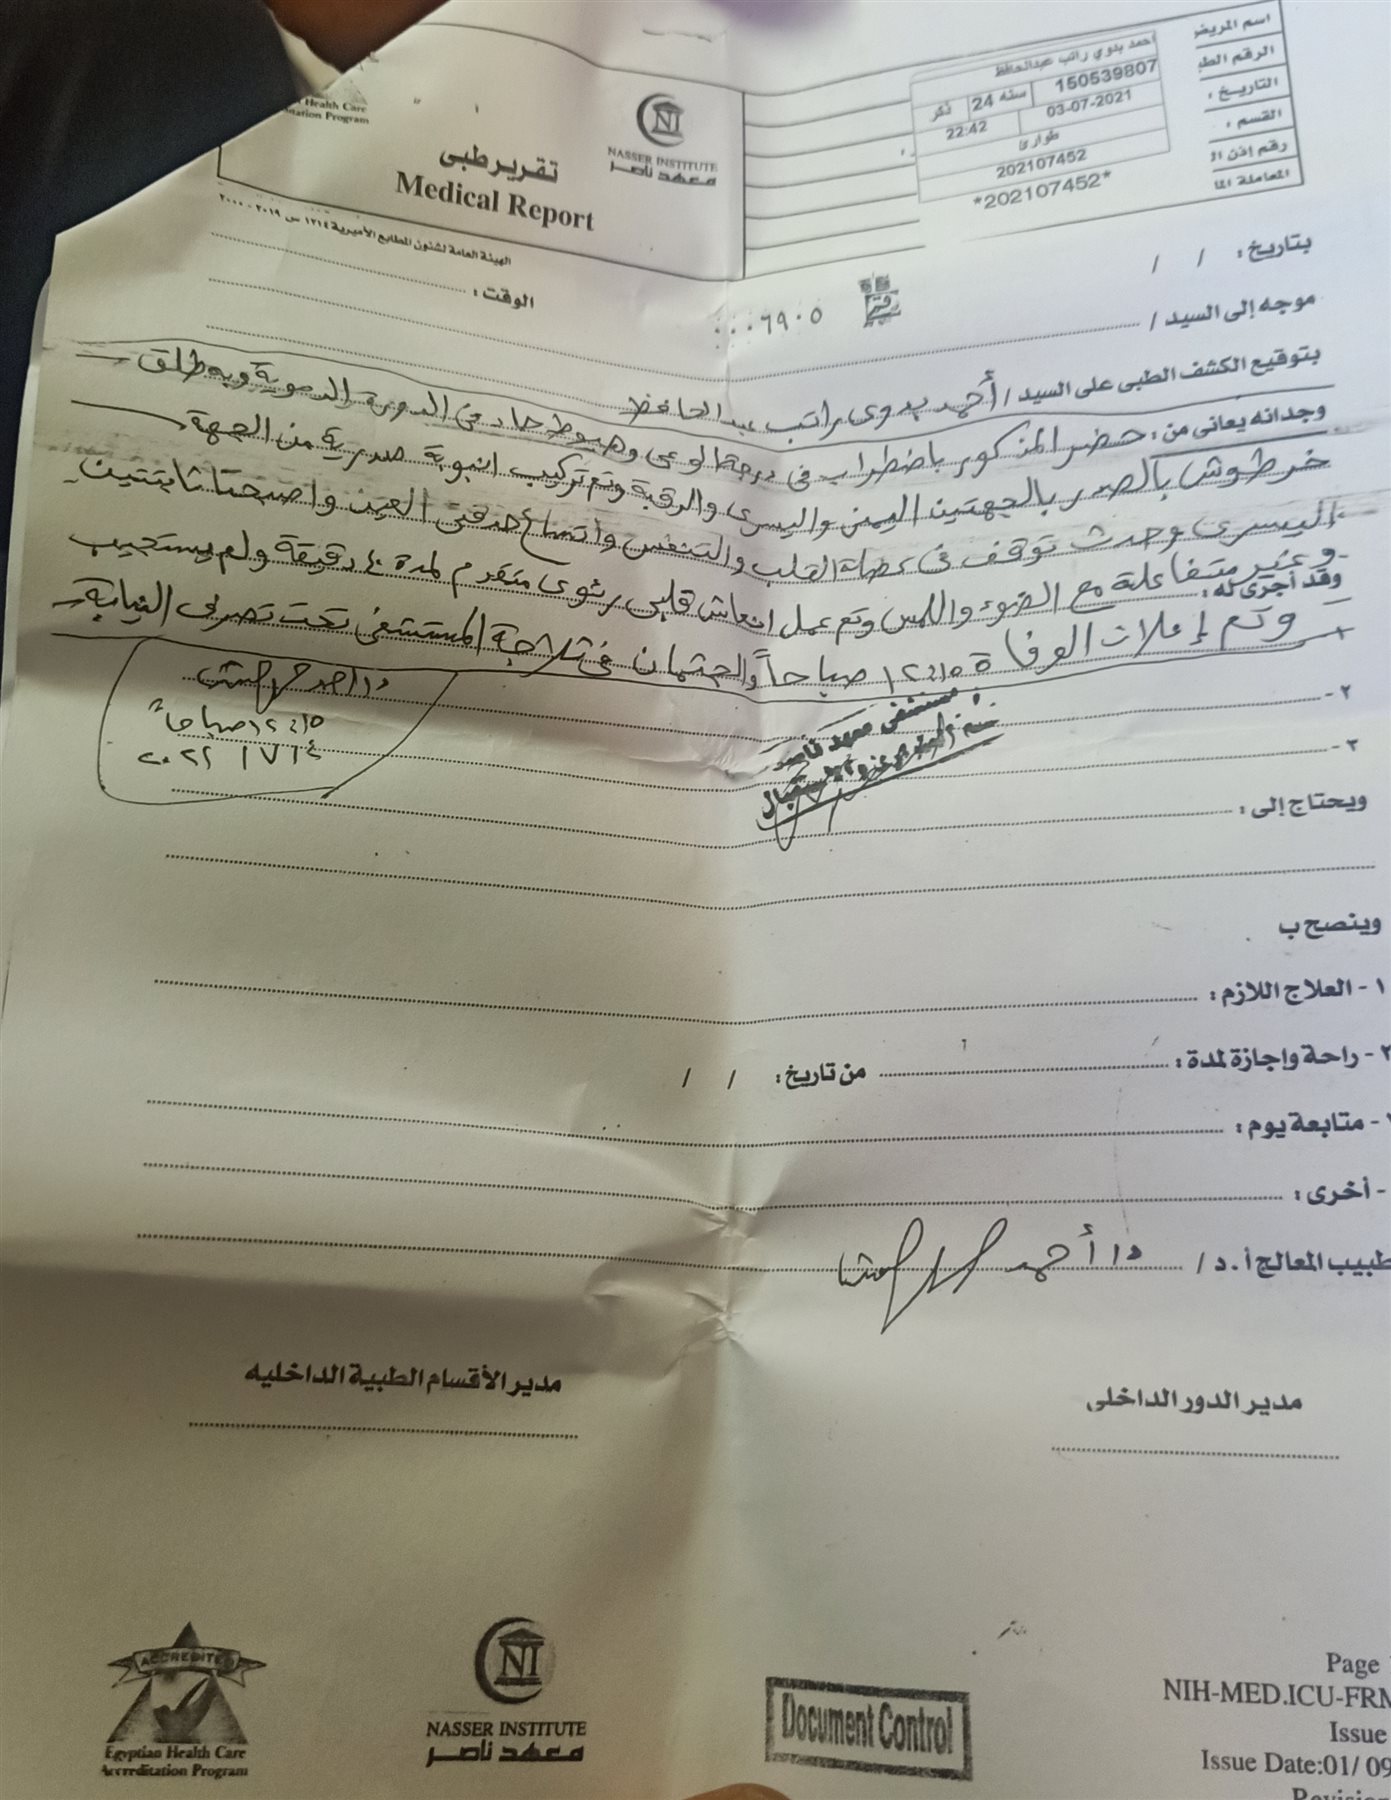 اسم المريض
الرقم الطبـ
التاريخ :
القسم :
رقم إذن الـ
المعاملة الما
احمد بدوي راتب عبدالحافظ
150539807
24 سنه
ذكر
03-07-2021
22:42
طوارئ
202107452
*202107452*
Health Care
Program
NASSER INSTITUTE
معهد ناصر
تقرير طبى
Medical Report
الهيئة العامة لشئون المطابع الأميرية ١٣١٤ س ٢٠١٩ - ٢٠٠٠
بتاريخ : / /
الوقت :
موجه إلى السيد /
٠٠٠٦٩٠٥
بتوقيع الكشف الطبى على السيد / أحمد بدوى راتب عبد الحافظ
وجد انه يعانى من : حضر المذكور باضطراب فى درجة الوعى وهبوط حاد فى الدورة الدموية وبه طلق
خرطوش بالصدر بالجهتين اليمنى واليسرى والرقبة وتم تركيب انبوبة صدرية من الجهة
اليسرى وحدث توقف فى عضلة القلب والتنفس واتساع حدقتى العين واصبحتا ثابتتين
وغير متفاعلة مع الضوء واللمس وتم عمل انعاش قلبى رئوى متقدم لمدة ٤٠ دقيقة ولم يستجيب
وقد أجرى له :
١- وتم إعلان الوفاة ١٢:١٥ صباحاً والجثمان فى ثلاجة المستشفى تحت تصرف النيابة
٢ -
٣ -
د/ احمد
١٢:١٥ صباحاً
٢٠٢١/٧/٤
مستشفى معهد ناصر
ويحتاج إلى :
وينصح ب
١ - العلاج اللازم :
٢ - راحة واجازة لمدة : من تاريخ : / /
- متابعة يوم :
- أخرى :
طبيب المعالج أ . د / د/ أحمد
مدير الدور الداخلى
مدير الأقسام الطبية الداخليه
ACCREDITED
Egyptian Health Care
Accreditation Program
NASSER INSTITUTE
معهد ناصر
Document Control
Page
NIH-MED.ICU-FRM
Issue
Issue Date:01/ 09
Revision